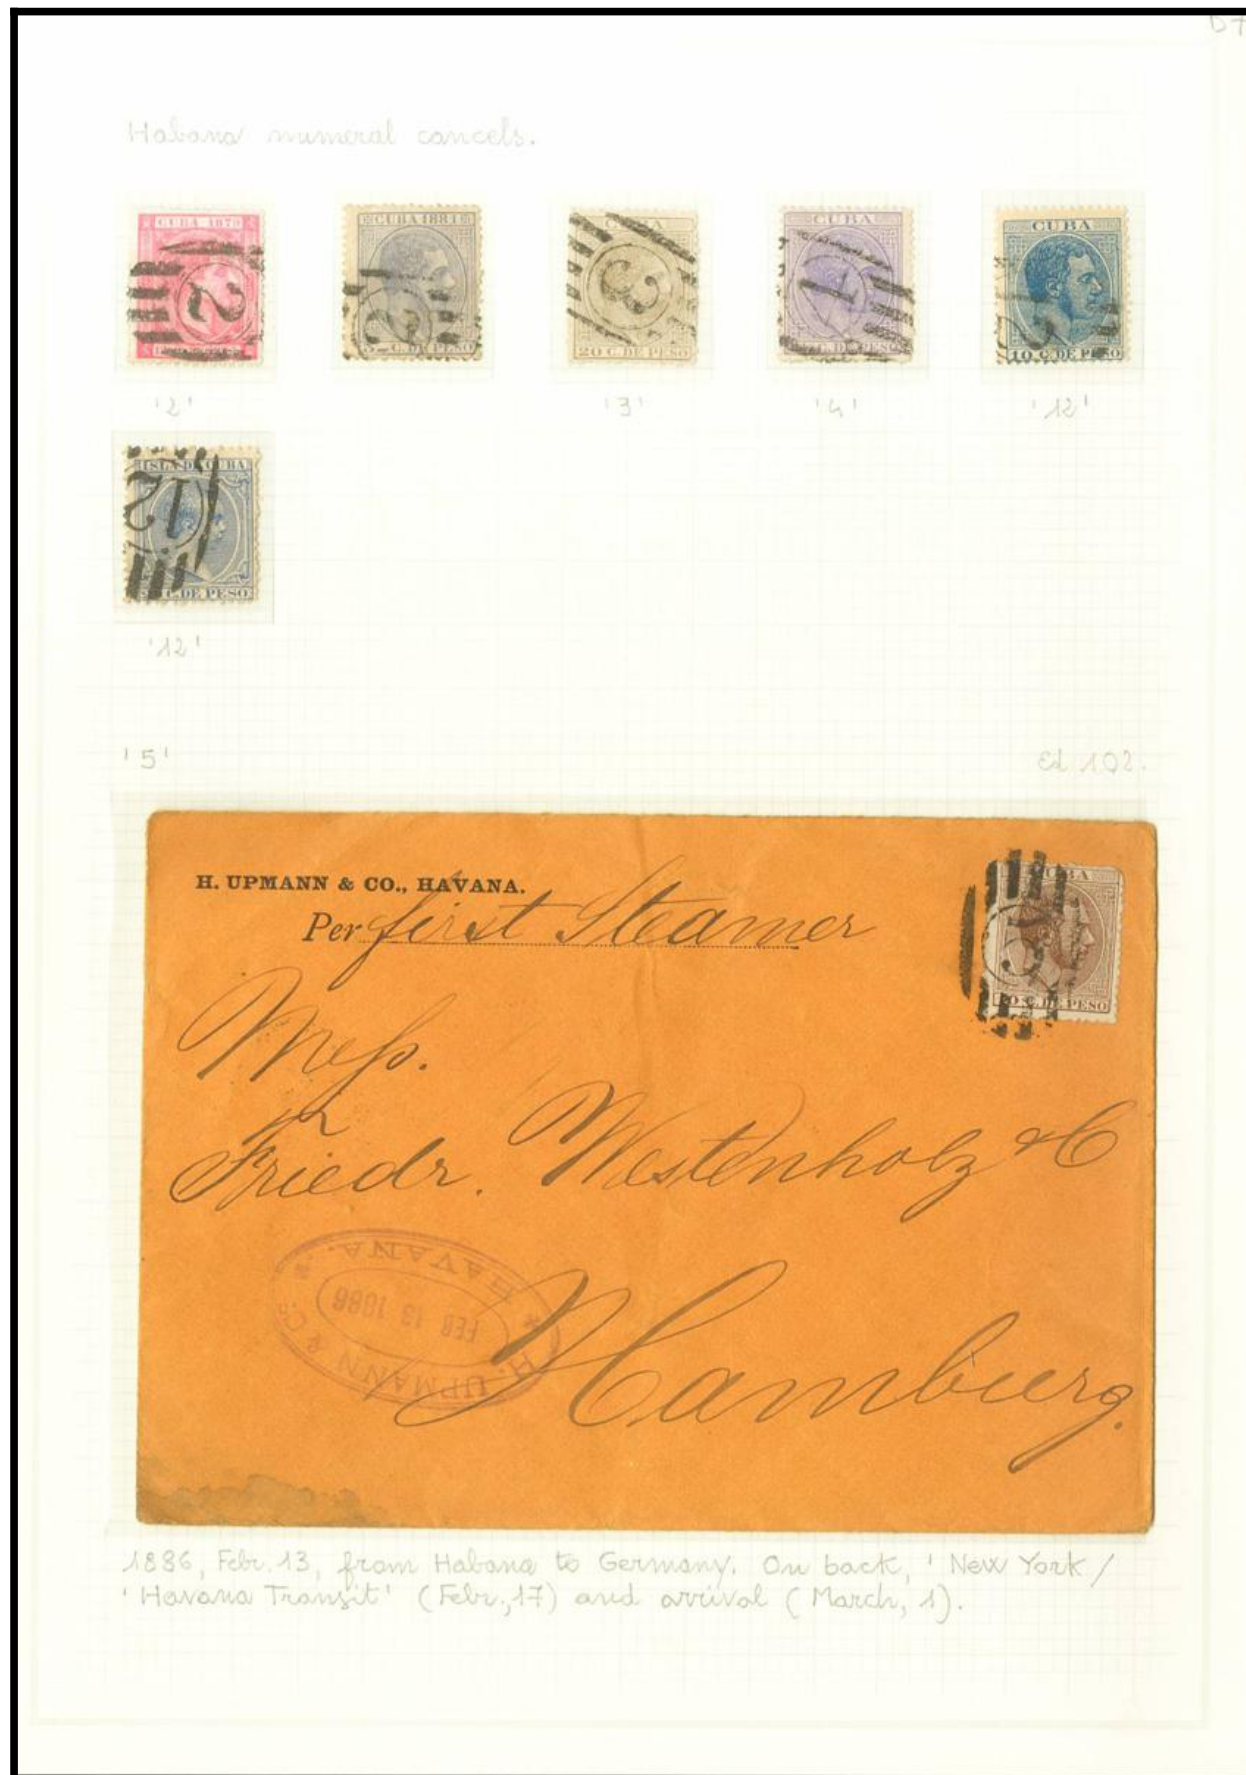 D7
Habana numeral cancels.
CUBA 1879
2
CUBA 1881
C. DE PESO
2
3
20 C. DE PESO
CUBA
C. DE PESO
CUBA
10 C. DE PESO
'2'
'3'
'4'
'12'
ISLA DE CUBA
12
C. DE PESO
'12'
'5'
Ed 102.
H. UPMANN & CO., HAVANA.
Per first Steamer
CUBA
5
C. DE PESO
Mess.
Friedr. Westenholz & C
H. UPMANN & Co. * HAVANA. *
FEB 13 1886
Hamburg.
1886, Febr. 13, from Habana to Germany. On back, 'New York /
'Havana Transit' (Febr., 17) and arrival (March, 1).